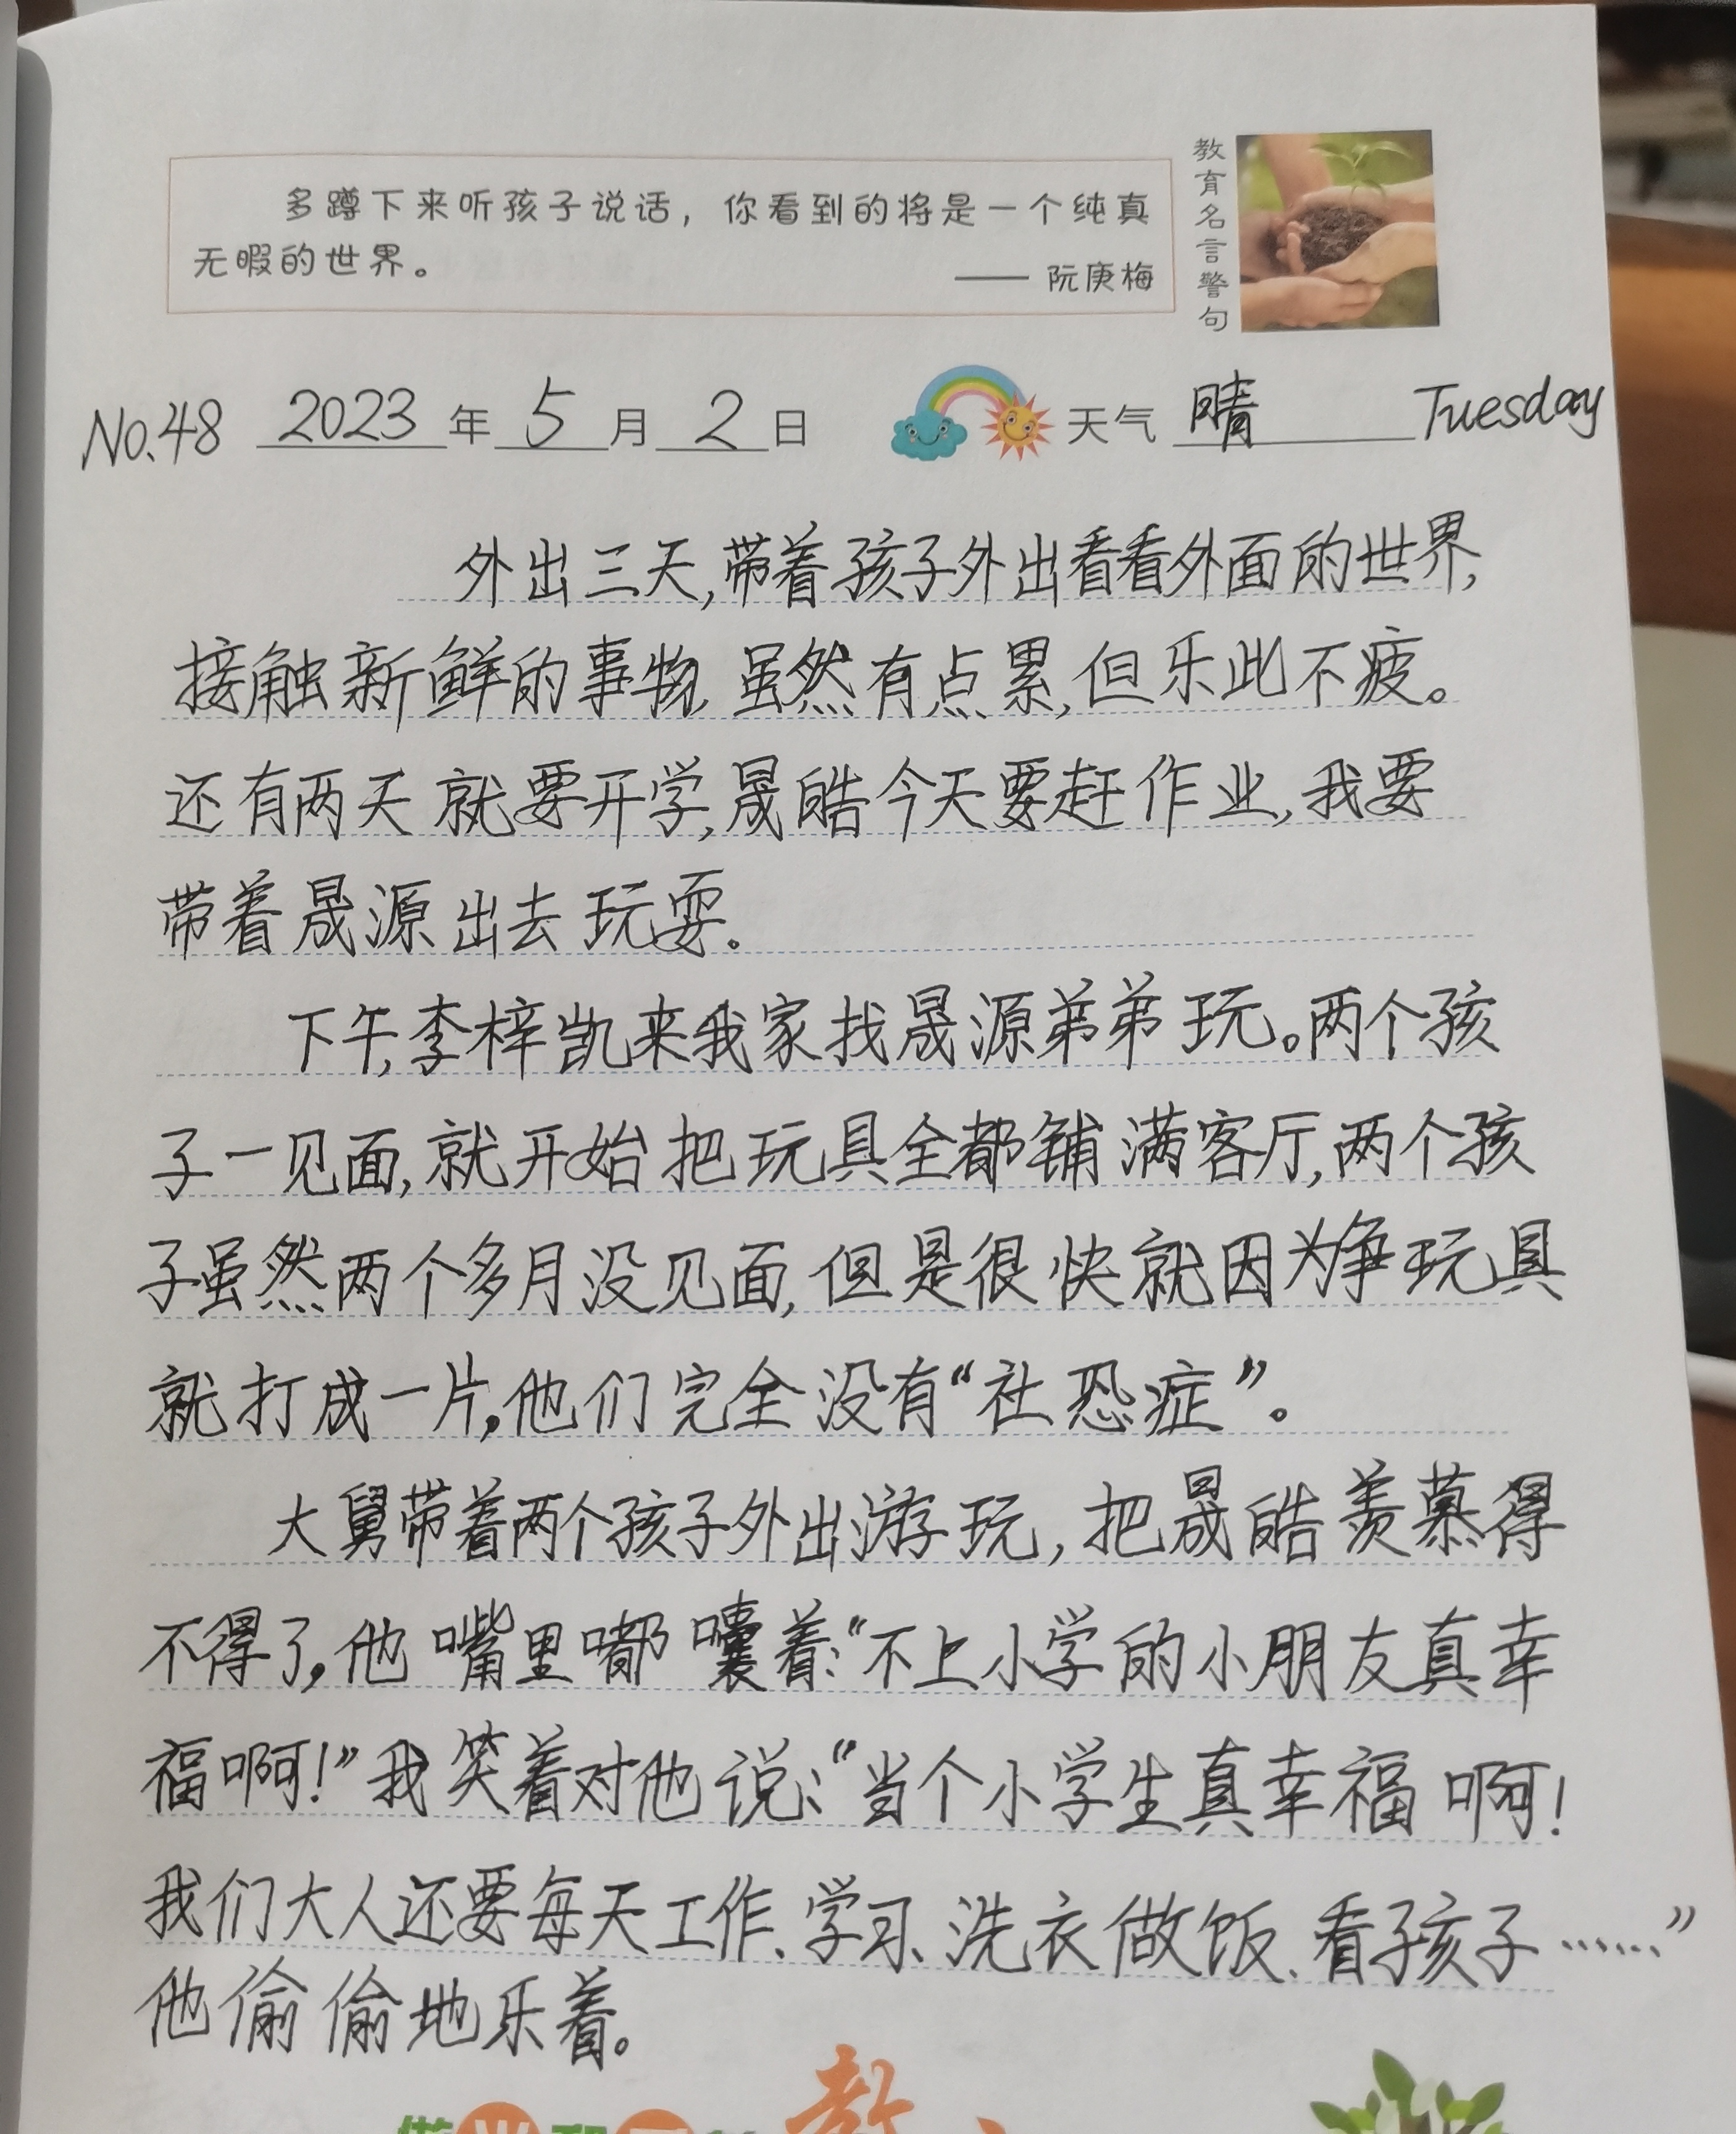 多蹲下来听孩子说话，你看到的将是一个纯真
无暇的世界。
—— 阮庚梅
教育名言警句
No.48 2023年5月2日 天气 晴 Tuesday
外出三天,带着孩子外出看看外面的世界,
接触新鲜的事物,虽然有点累,但乐此不疲。
还有两天就要开学,晟皓今天要赶作业,我要
带着晟源出去玩耍。
下午,李梓凯来我家找晟源弟弟玩。两个孩
子一见面,就开始把玩具全都铺满客厅,两个孩
子虽然两个多月没见面,但是很快就因为争玩具
就打成一片,他们完全没有“社恐症”。
大舅带着两个孩子外出游玩,把晟皓羡慕得
不得了,他嘴里嘟囔着:“不上小学的小朋友真幸
福啊!”我笑着对他说:“当个小学生真幸福啊!
我们大人还要每天工作、学习、洗衣做饭、看孩子……”
他偷偷地乐着。
教